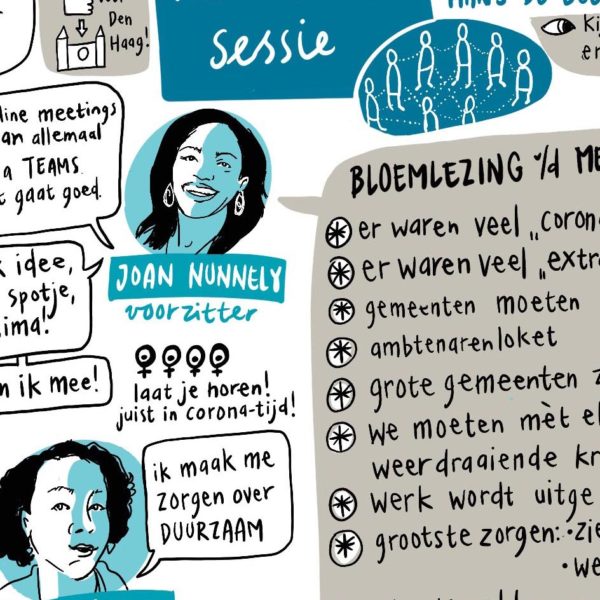 Den
Haag!
sessie
Ki
line meetings
an allemaal
a TEAMS.
t gaat goed.
idee,
spotje,
ima!
n ik mee!
JOAN NUNNELY
voorzitter
laat je horen!
juist in corona-tijd!
ik maak me
zorgen over
DUURZAAM
BLOEMLEZING v/d ME
er waren veel „coron
er waren veel „extra
gemeenten moeten
ambtenarenloket
grote gemeenten z
we moeten mèt el
weerdraaiende kr
werk wordt uitge
grootste zorgen: •zie
•we